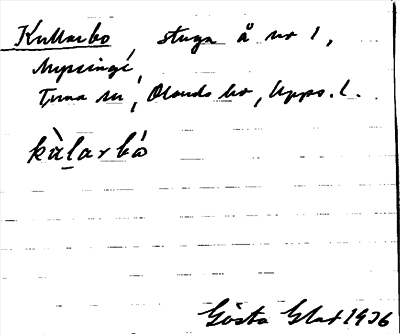 Kullarbo, stuga å nr 1,
Nypsinge,
Tuna sn, Olands hd, Upps. l.
kàl̲arbó
Gösta Glat 1936